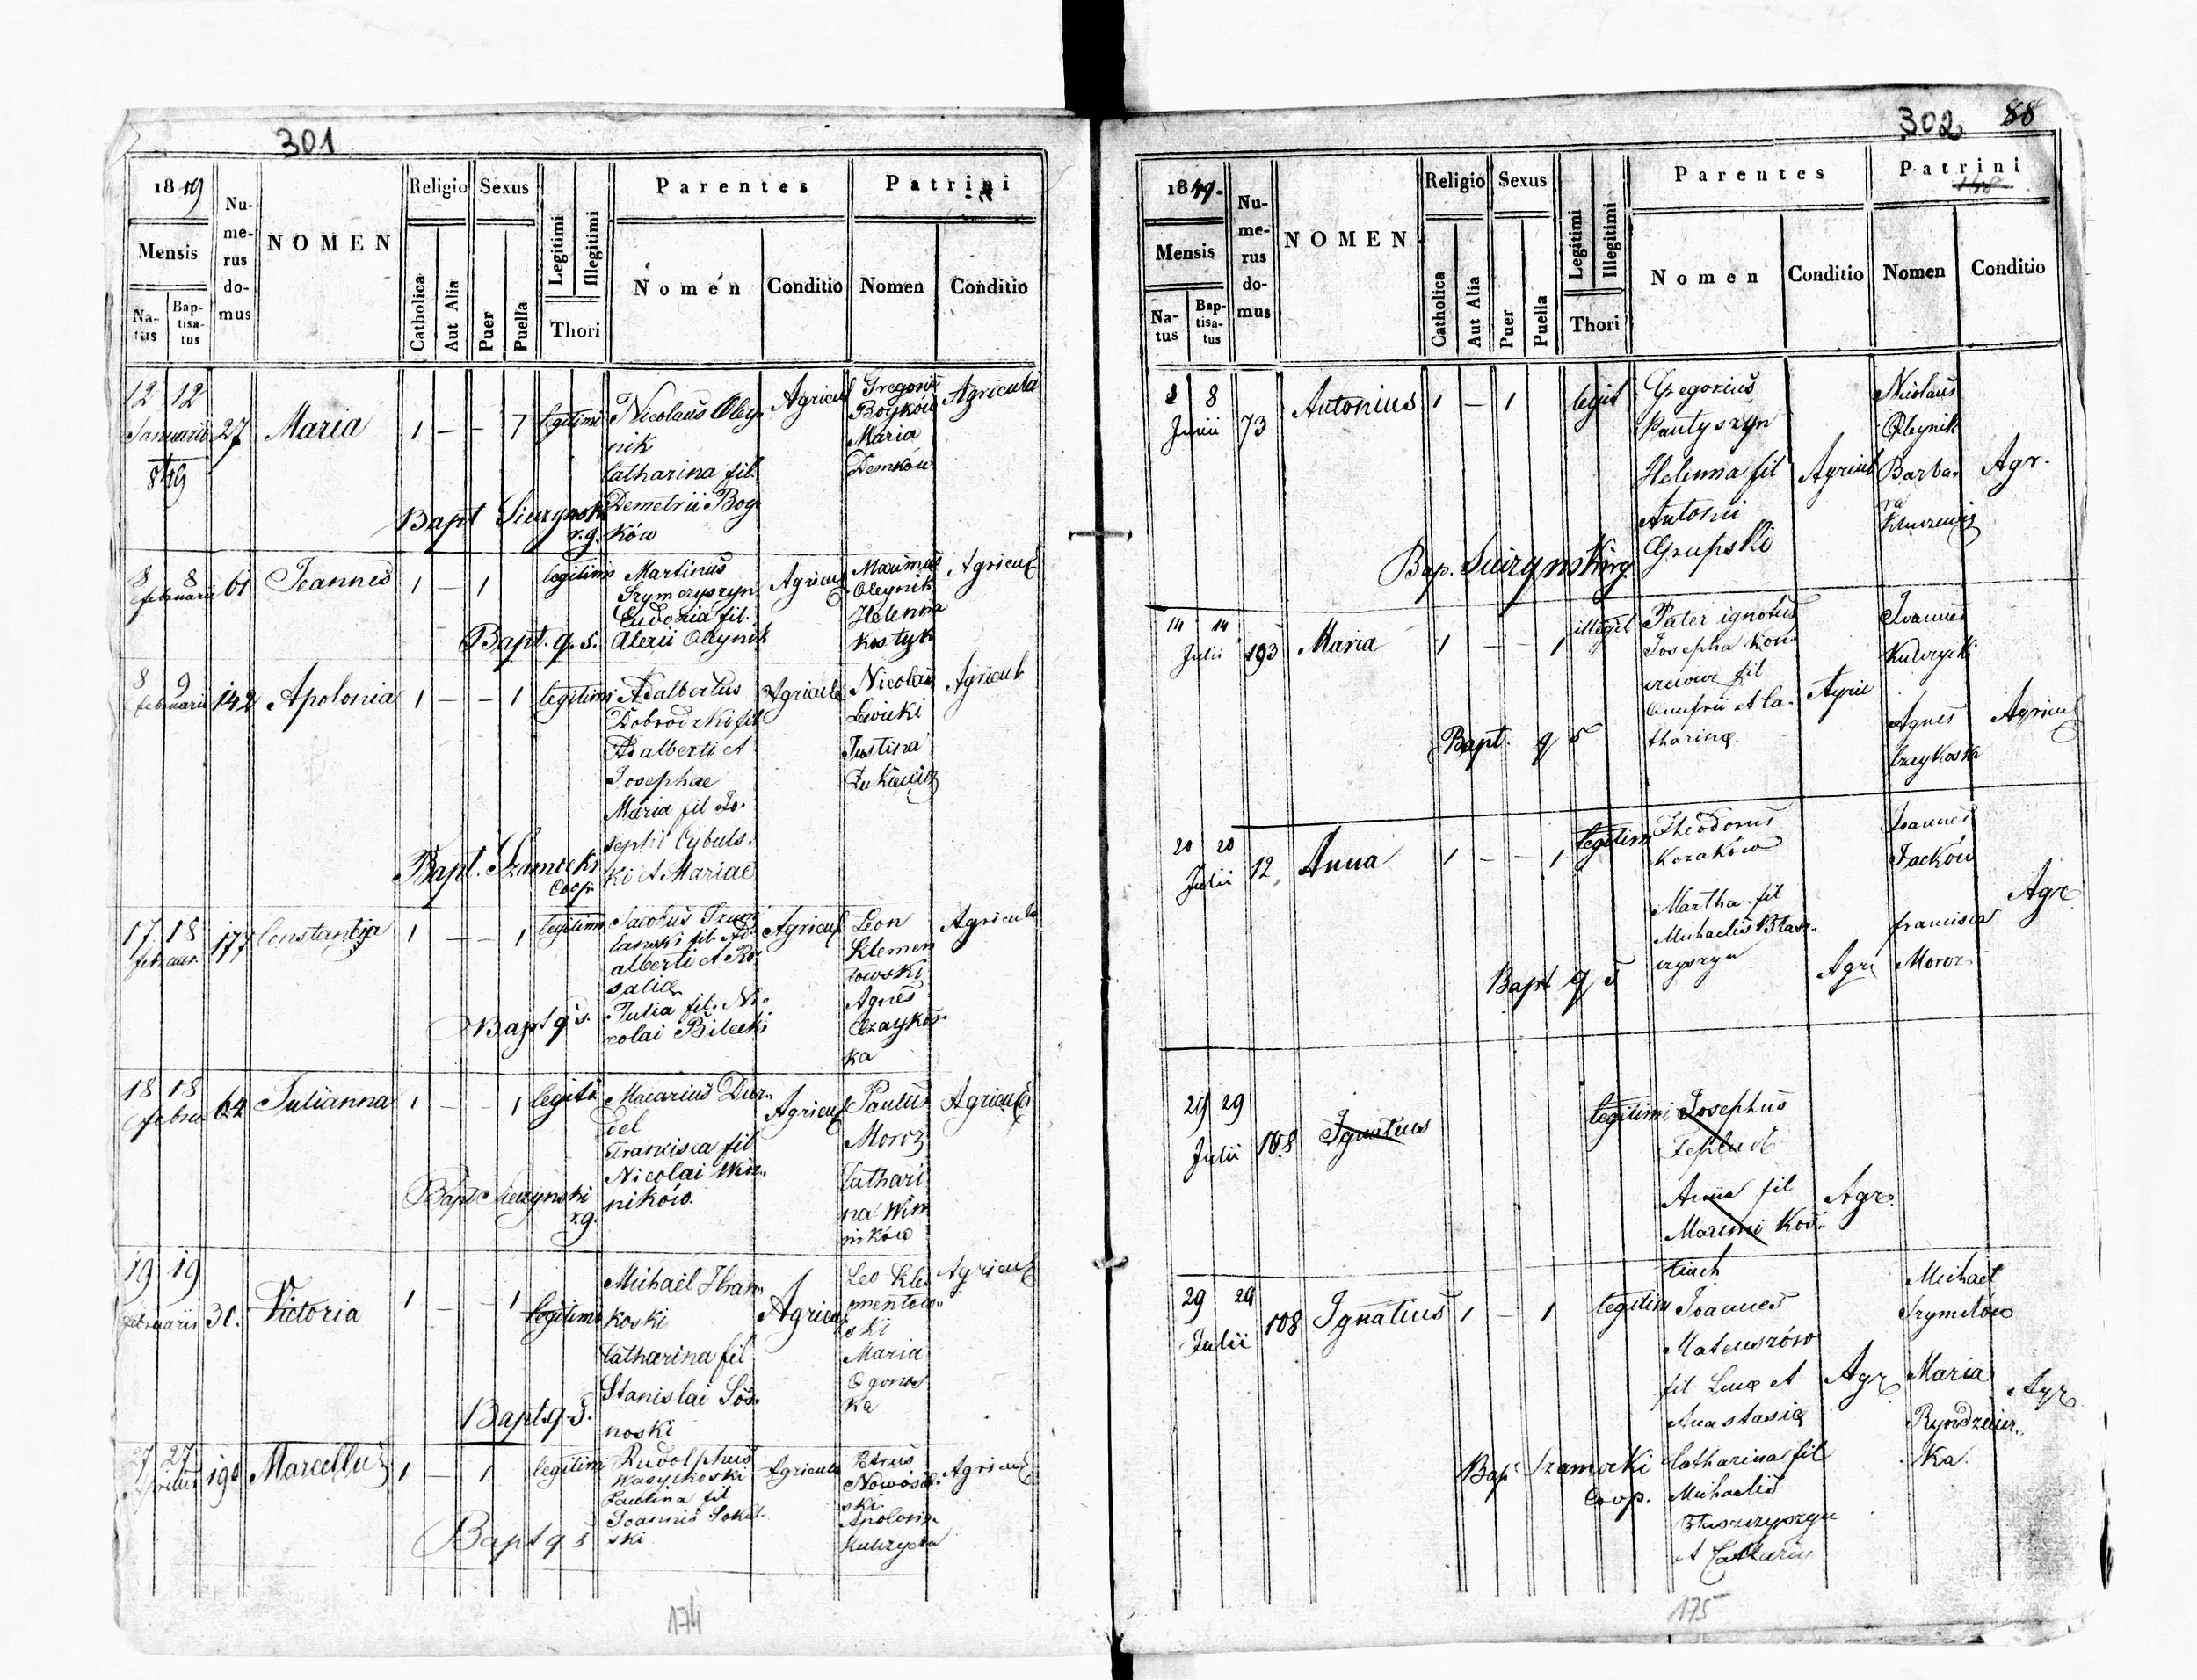 301
1849
Mensis
Na-
tus
Bap-
tisa-
tus
Nu-
me-
rus
do-
mus
NOMEN
Religio
Catholica
Aut Alia
Sexus
Puer
Puella
Legitimi
Illegitimi
Thori
Parentes
Nomen
Conditio
Patrini
Nomen
Conditio
12 12
Januarii
849
27
Maria
1 – – 1
legitimi
Nicolaus Oley
nik
Catharina fil.
Demetrii Boy
ków
Agricul
Gregorii
Boyków
Maria
Demków
Agricula
Bapt Sieczynski
r.g.
8 8
februarii
61
Joannes
1 – 1
legitimi
Martinus
Szymczyszyn
Eudoxia fil.
Alexii Oleynik
Agricul
Maximus
Oleynik
Helenna
Kostyk
Agricul
Bapt. q. s.
8 9
februarii
142
Apolonia
1 – – 1
legitimi
Adalbertus
Dobrodzki fil
Adalberti et
Josephae
Maria fil Jo-
sephi Cybuls-
ki et Mariae
Agricul
Nicolaus
Lewicki
Justina
Lukiewicz
Agricul
Bapt. Szamocki
Coop.
17 18
februar.
177
Constantija
1 – – 1
legitimi
Jacobus
alberti et Ro-
salia
Julia fil. Ni-
colai Bilecki
Agricul
Leon
Klemen
towski
Agnes
Czaykos-
ka
Agricul
Bapt q s.
18 18
februa
64
Julianna
1 – – 1
legiti
Macarius Dur-
del
Francisca fil
Nicolai Win-
ników.
Agricul
Paulus
Moroz
Cathari
na Win
ników
Agricul
Bapt Sieczynski
r.g.
19 19
februarii
30.
Victoria
1 – – 1
legitimi
Michael Hran-
koski
Catharina fil
Stanislai Sos-
noski
Agricul
Leo Kle-
mentow-
ski
Maria
Ogonos
ka
Agricul
Bapt. q. s.
27 27
190
Marcellus
1 – 1
legitimi
Rudolphus
Wasylkoski
Paulina fil
Joannis Sokul-
ski
Agricula
Petrus
Nowosel-
ski
Apolonia
Kulczycka
Agricul
Bapt q s
174
302
88
1849.
Mensis
Na-
tus
Bap-
tisa-
tus
Nu-
me-
rus
do-
mus
NOMEN
Religio
Catholica
Aut Alia
Sexus
Puer
Puella
Legitimi
Illegitimi
Thori
Parentes
Nomen
Conditio
Patrini
Nomen
Conditio
8 8
Junii
73
Antonius
1 – 1
legit
Gregorius
Pantyszyn
Helenna fil
Antonii
Grupski
Agricul
Nicolaus
Oleynik
Barba-
ra
Agr.
Bap. Sieczynski rg.
14 14
Julii
193
Maria
1 – – 1
illegit
Pater ignotus
Josepha Kon-
fil
Onufrii et Ca-
tharina.
Agric
Joannes
Kulczycki
Agnes
Czaykoska
Agricul
Bapt. q s
20 20
Julii
12
Anna
1 – – 1
legitim
Theodorus
Kozaków
Martha fil
Michaelis Błasz-
czyszyn
Agri
Joannes
Jacków
francisca
Moroz
Agr
Bapt q s
29 29
Julii
108
Ignatius
legitimi
Josephus
Anna fil
Maximi Kos-
tiuch
Agr.
29 29
Julii
108
Ignatius
1 – 1
legitim
Joannes
Mateuszów
fil Luca et
Anastasia
Catharina fil
Michaelis
Błaszczyszyn
et Catharin
Agr
Michael
Szymków
Maria
Ryndzewicz-
ka
Agr
Bap Szamocki
Coop.
175